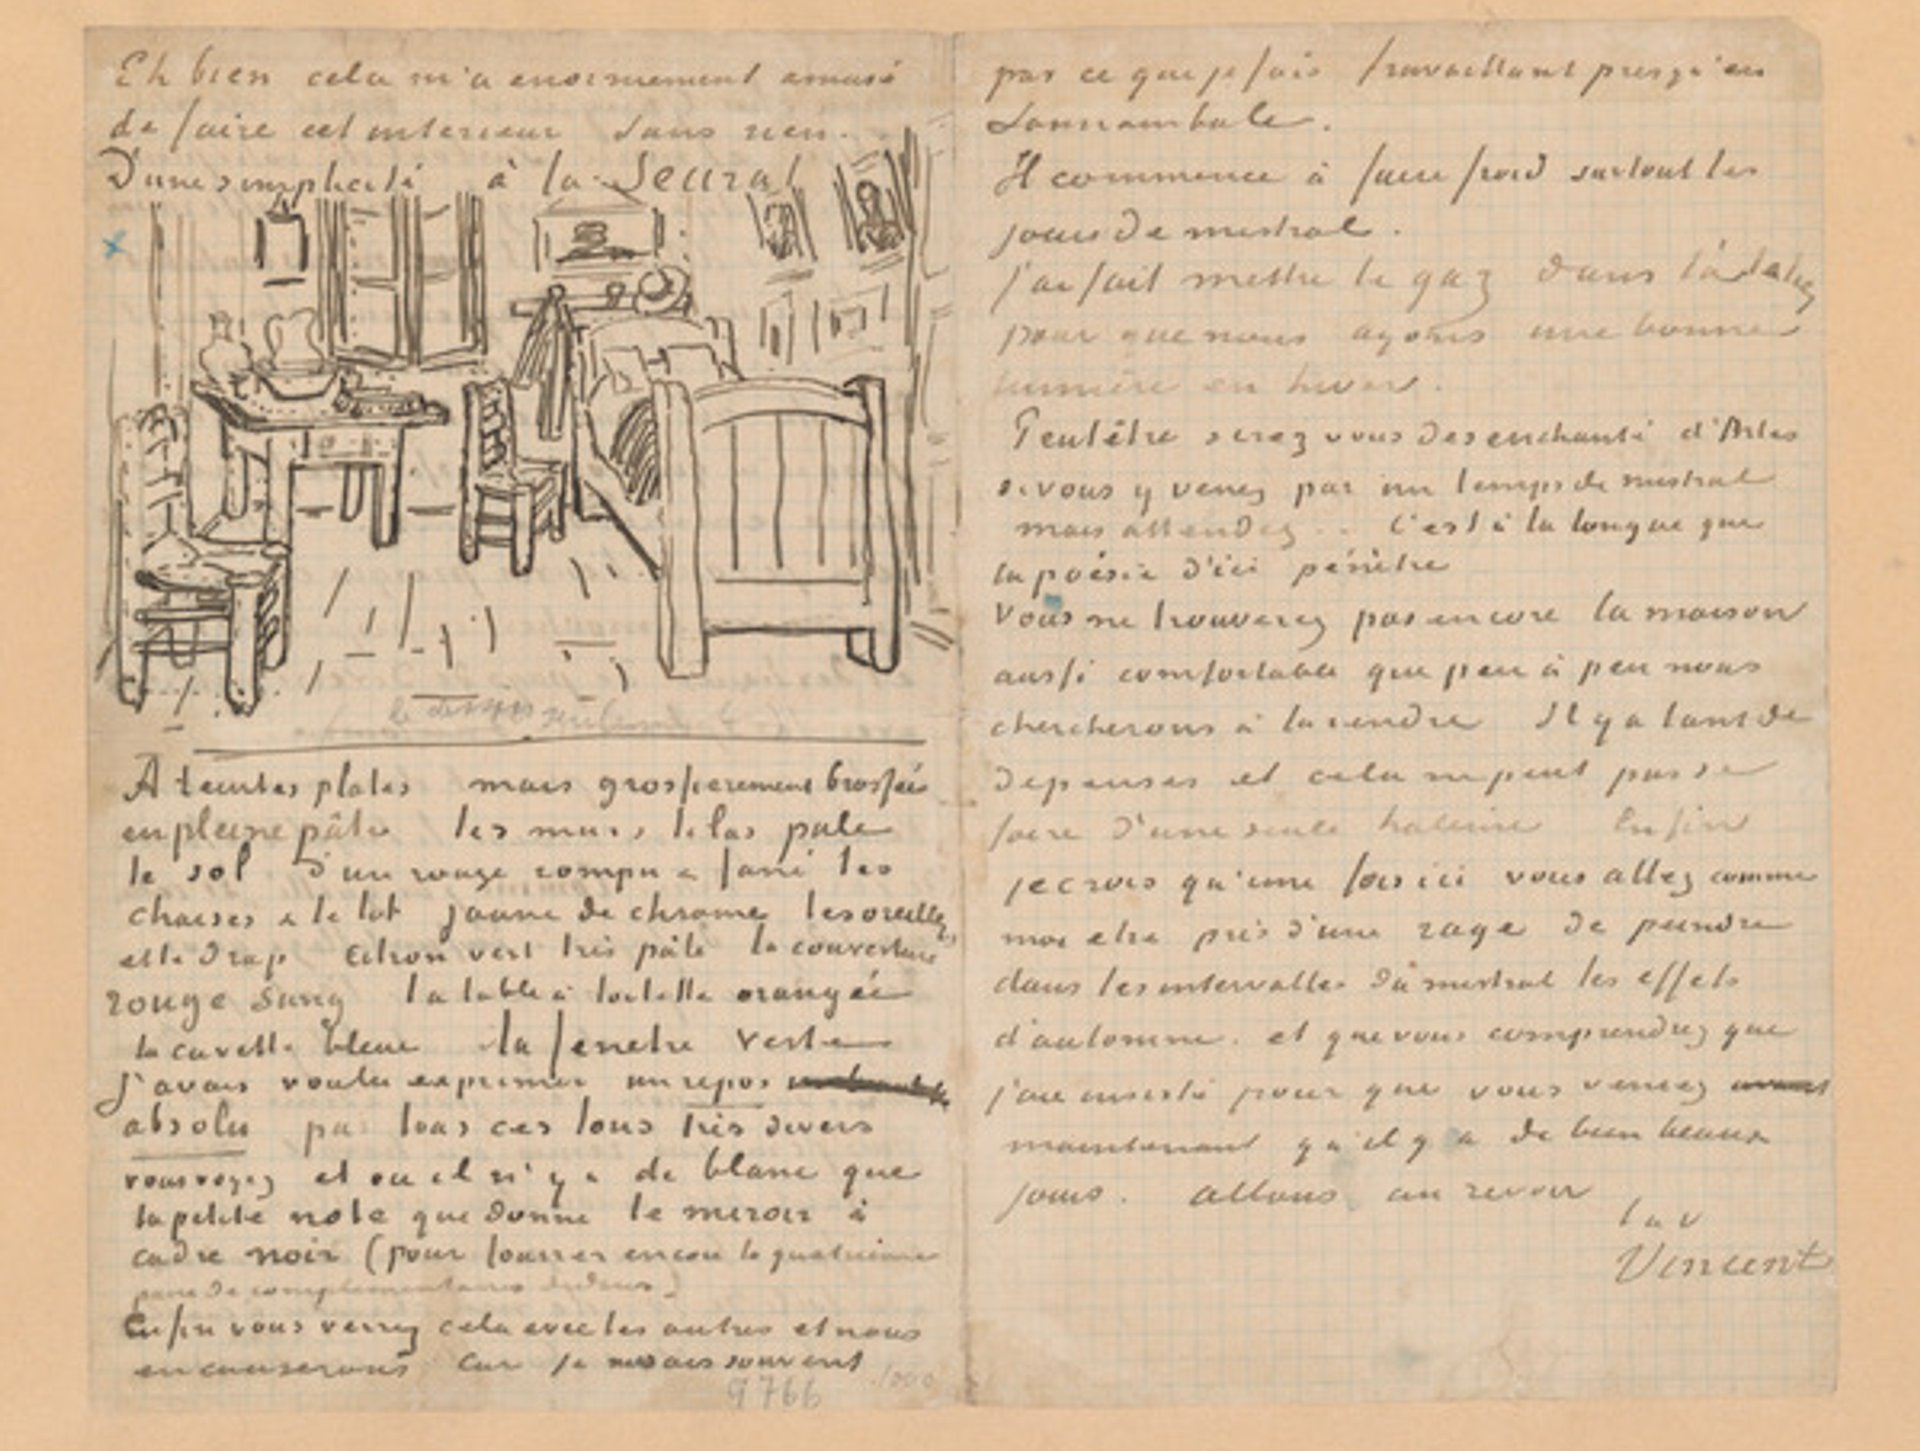 Eh bien cela m'a enormement amusé
de faire cet interieur sans rien.
D'une simplicité à la Seurat
le dessin seulement
À teintes plates mais grossierement brossées
en pleine pâte les murs lilas pale
le sol d'un rouge rompu & fané les
chaises & le lit jaune de chrome les oreillers
et le drap citron vert très pâle la couverture
rouge sang la table à toilette orangée
la cuvette bleue la fenetre verte
j'avais voulu exprimer un repos
absolu par tous ces tons très divers
vous voyez et ou il n'y a de blanc que
la petite note que donne le miroir à
cadre noir (pour fourrer encore la quatrieme
paire de complementaires dedans)
Enfin vous verrez cela avec les autres et nous
en causerons car je ne sais souvent
9766
par ce que je fais travaillant presqu'en
somnambule.
Il commence à faire froid surtout les
jours de mistral.
j'ai fait mettre le gaz dans l'atelier
pour que nous ayons une bonne
lumière en hiver.
Peutêtre serez vous desenchanté d'Arles
si vous y venez par un temps de mistral
mais attendez.. C'est à la longue que
la poésie d'ici pénètre
Vous ne trouverez pas encore la maison
aussi comfortable que peu à peu nous
chercherons à la rendre Il y a tant de
depenses et cela ne peut pas se
faire d'une seule haleine Enfin
je crois qu'une fois ici vous allez comme
moi etre pris d'une rage de peindre
dans les intervalles du mistral les effets
d'automne. et que vous comprendrez que
j'aie insisté pour que vous veniez
maintenant qu'il y a de bien beaux
jours. allons au revoir
t. à v
Vincent